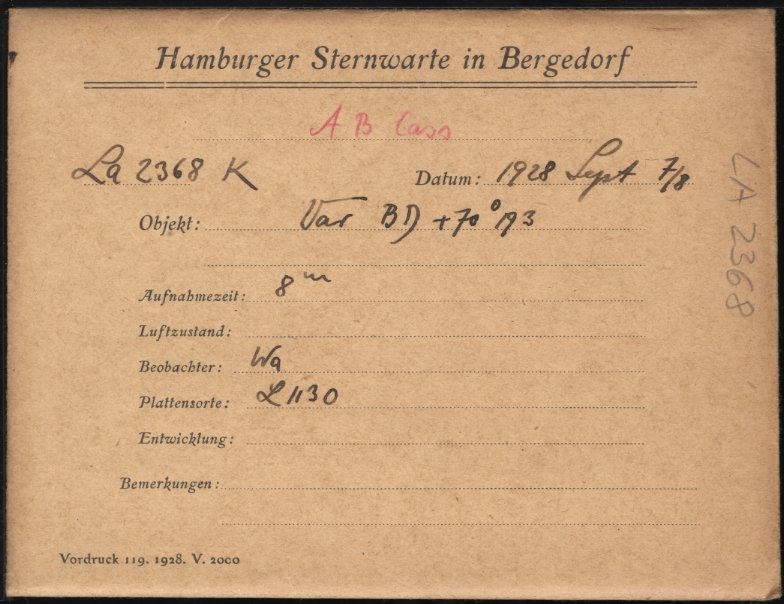 Hamburger Sternwarte in Bergedorf
A B Cass
La 2368 K Datum: 1928 Sept 7/8
Objekt: Var BD +70°193
Aufnahmezeit: 8m
Luftzustand:
Beobachter: Wa
Plattensorte: L 1130
Entwicklung:
Bemerkungen:
Vordruck 119. 1928. V. 2000
LA 2368